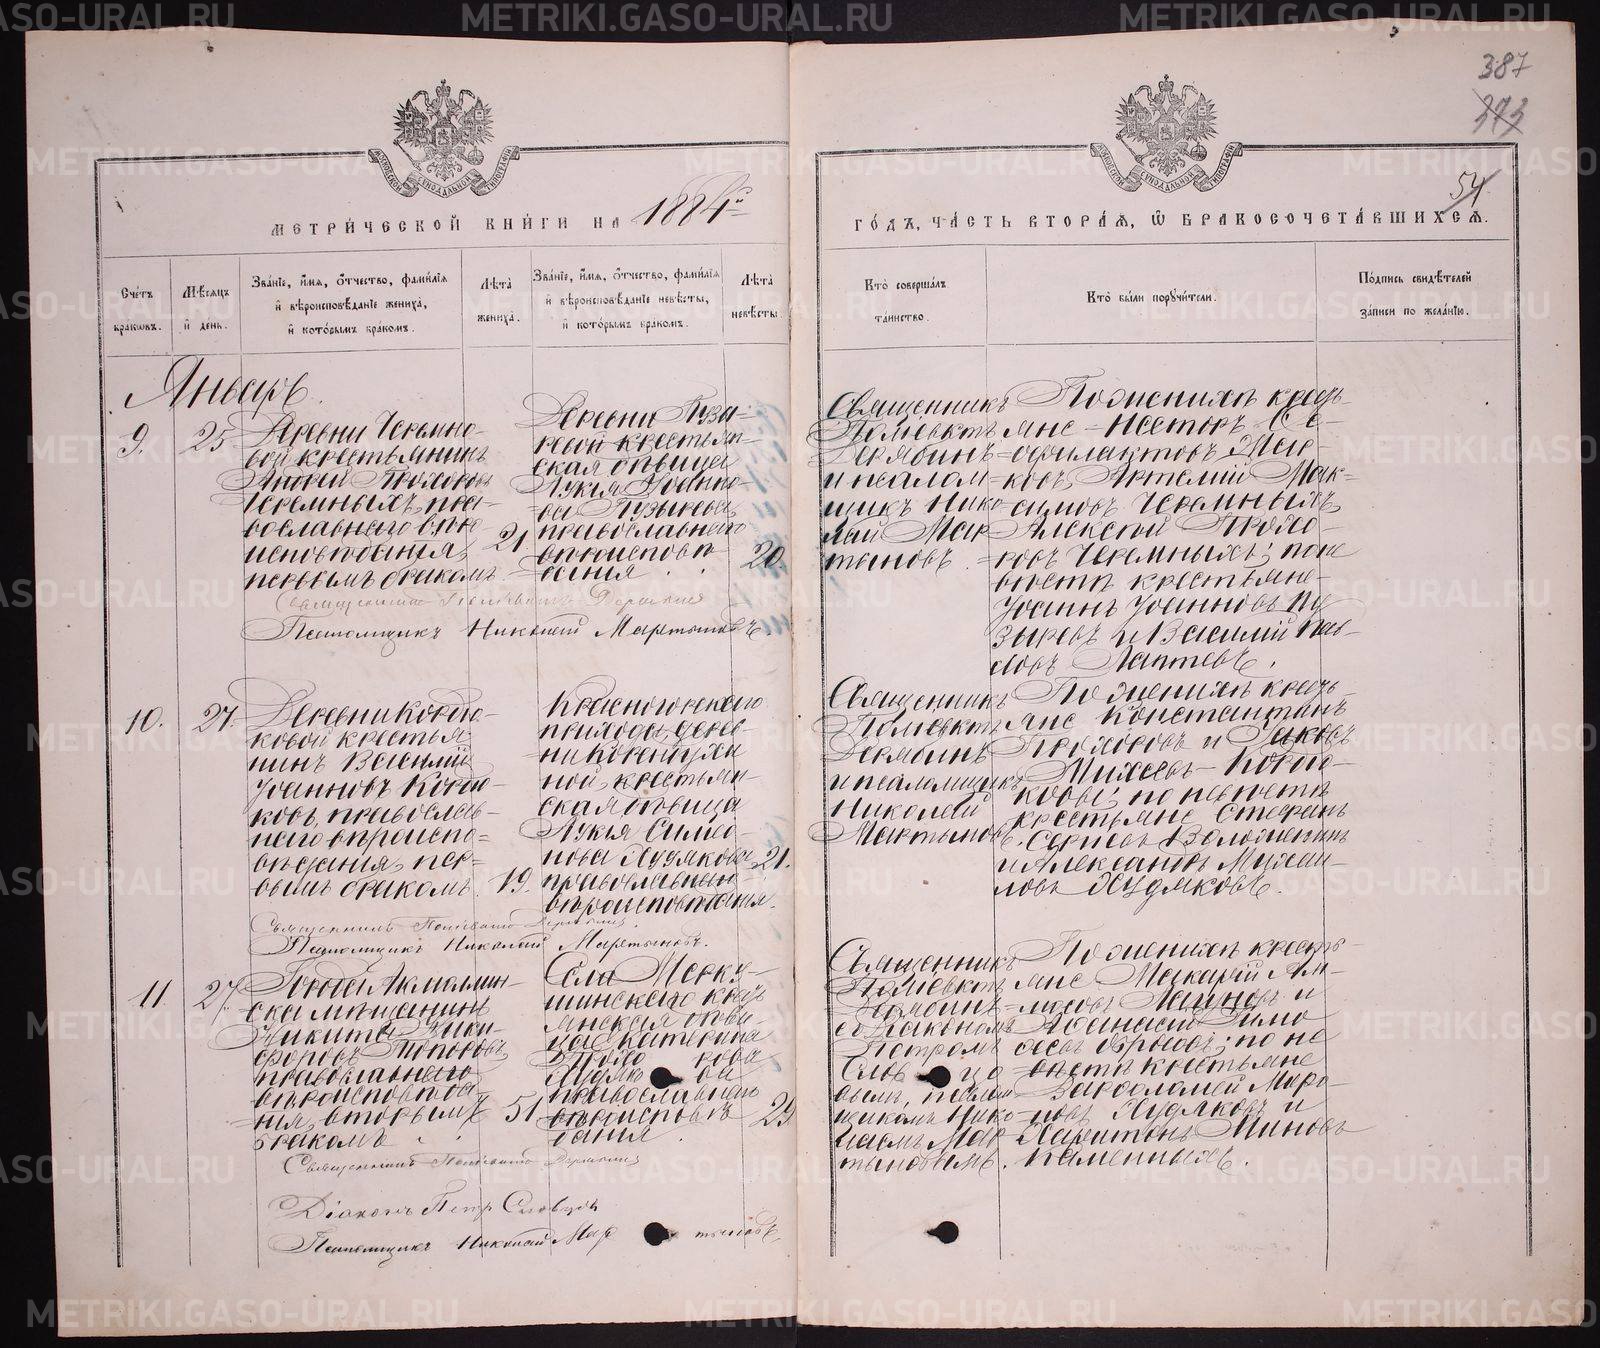 387
373
54
МЕТРИ́ЧЕСКОЙ КНИ́ГИ НА 1884й
ГО́ДЪ, ЧА́СТЬ ВТОРА́Я, Ѽ БРАКОСОЧЕТА́ВШИХСѦ.
Сче́тъ
браковъ.
Мѣсяцъ
и҆ день.
Зва́нїе, и҆́мя, ѻ҆́тчество, фами́лїя
и҆ вѣроисповѣ́данїе жениха̀,
и҆ кото́рымъ бра́комъ.
Лѣта̀
жениха̀.
Зва́нїе, и҆́мя, ѻ҆́тчество, фами́лїя
и҆ вѣроисповѣ́данїе невѣ́сты,
и҆ кото́рымъ бра́комъ.
Лѣта̀
невѣ́сты.
Кто̀ соверша́лъ
та́инство.
Кто̀ бы́ли поручи́тели.
По́дпись свидѣ́телей
за́писи по жела́нїю.
Январь.
9.
25
Деревни Черемно-
вой крестьянинъ
Андрей Прохоровъ
Черемныхъ, пра-
вославнаго вѣро
исповѣданія,
первымъ бракомъ
21
Деревни Пузы-
ревой крестьян-
ская дѣвица
Лукія Іоанно-
ва Пузырева,
православнаго
вѣроисповѣ
данія
20.
Священникъ
Поліевктъ
Дерябинъ
и псалом-
щикъ Нико
лай Мар
тыновъ.
По женихѣ кресть
яне - Несторъ Ѳе-
офилактовъ
Артемій Мак-
симовъ Черемныхъ,
Алексѣй Прохо
ровъ Черемныхъ; по не
вѣстѣ крестьяне-
Іоаннъ Іоанновъ Пу
зыревъ и Василій Пав-
ловъ Лаптевъ.
Священникъ Поліевктъ Дерябинъ
Псаломщикъ Николай Мартыновъ.
10.
27.
Деревни Кордю-
ковой крестья
нинъ Василій
Іоанновъ Кордю
ковъ, православ-
наго вѣроиспо-
вѣданія, пер-
вымъ бракомъ.
19.
Красногорскаго
прихода, дерев-
ни Комельги
ной, крестьян-
ская дѣвица
Лукія Симео-
нова Худякова,
православнаго
вѣроисповѣданія.
21.
Священникъ
Поліевктъ
Дерябинъ
и псаломщикъ
Николай
Мартыновъ.
По женихѣ кресть
яне Константинъ
Прохоровъ и Іаковъ
Михеевъ - Кордю-
ковы; по невѣстѣ
крестьяне Стефанъ
Сергіевъ Воложенинъ
и Александръ Михаи-
ловъ Худяковъ.
Священникъ Поліевктъ Дерябинъ
Псаломщикъ Николай Мартыновъ.
11.
27.
Города Акмолин-
ска мѣщанинъ
Никита Ники
форовъ Топорковъ,
православнаго
вѣроисповѣда-
нія, вторымъ
бракомъ
51
Села Мерку-
шинскаго кресть
янская дѣви
ца Екатерина
Прохорова
Худякова
православнаго
вѣроисповѣ
данія.
29.
Священникъ
Поліевктъ
Дерябинъ
съ діакономъ
Петромъ
Словцо
вымъ, псалом
щикомъ Нико
лаемъ Мар
тыновымъ.
По женихѣ кресть-
яне Макарій
и
Аѳанасій Тимо
ѳеевъ; по не
вѣстѣ крестьяне
Варѳоломей Миро-
новъ Худяковъ и
Харитонъ Миновъ
Каменныхъ.
Священникъ Поліевктъ Дерябинъ
Діаконъ Петр Словцовъ
Псаломщикъ Николай Мартыновъ.
METRIKI.GASO-URAL.RU